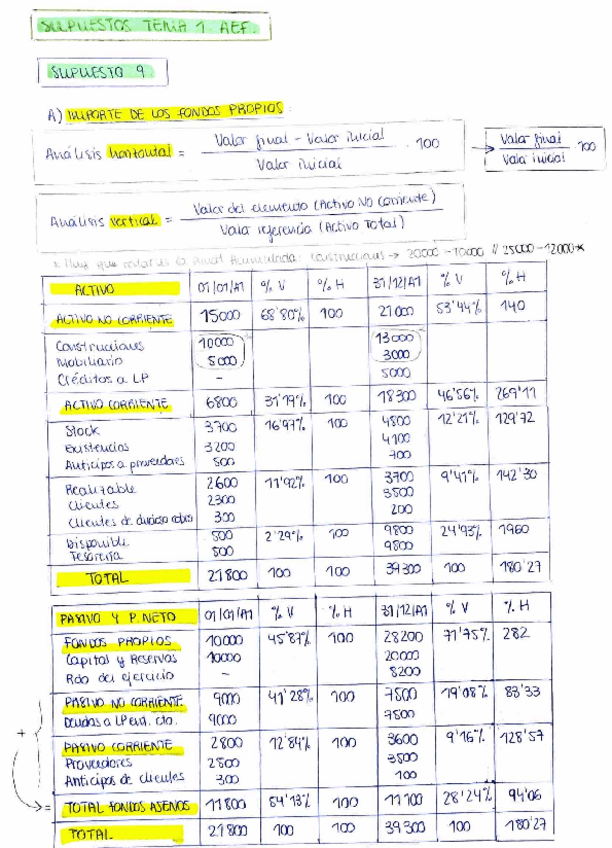 SUPUESTOS TEMA 1. AEF.
SUPUESTO 9.
A) IMPORTE DE LOS FONDOS PROPIOS:
Análisis horizontal = Valor final - Valor inicial / Valor inicial · 100 → Valor final / Valor inicial 100
Análisis vertical = Valor del elemento (Activo No Corriente) / Valor referencia (Activo Total)
* Hay que restarles la Amort Acumulada: construcciones → 20000 - 10000 // 25000 - 12000 *
ACTIVO 01/01/A1 % V % H 31/12/A1 % V % H
ACTIVO NO CORRIENTE 15000 68'80% 100 21000 53'44% 140
Construcciones 10000 13000
Mobiliario 5000 3000
Créditos a LP - 5000
ACTIVO CORRIENTE 6800 31'19% 100 18300 46'56% 269'11
Stock 3700 16'97% 100 4800 12'21% 129'72
Existencias 3200 4100
Anticipos a proveedores 500 700
Realizable 2600 11'92% 100 3700 9'41% 142'30
Clientes 2300 3500
Clientes de dudoso cobro 300 200
Disponible 500 2'29% 100 9800 24'93% 1960
Tesorería 500 9800
TOTAL 21800 100 100 39300 100 180'27
PASIVO Y P. NETO 01/01/A1 % V % H 31/12/A1 % V % H
FONDOS PROPIOS 10000 45'87% 100 28200 71'75% 282
Capital y Reservas 10000 20000
Rdo del ejercicio - 8200
PASIVO NO CORRIENTE 9000 41'28% 100 7500 19'08% 83'33
Deudas a LP ent. cto. 9000 7500
+
PASIVO CORRIENTE 2800 12'84% 100 3600 9'16% 128'57
Proveedores 2500 3500
Anticipos de clientes 300 100
= TOTAL FONDOS AJENOS 11800 54'13% 100 11100 28'24% 94'06
TOTAL 21800 100 100 39300 100 180'27